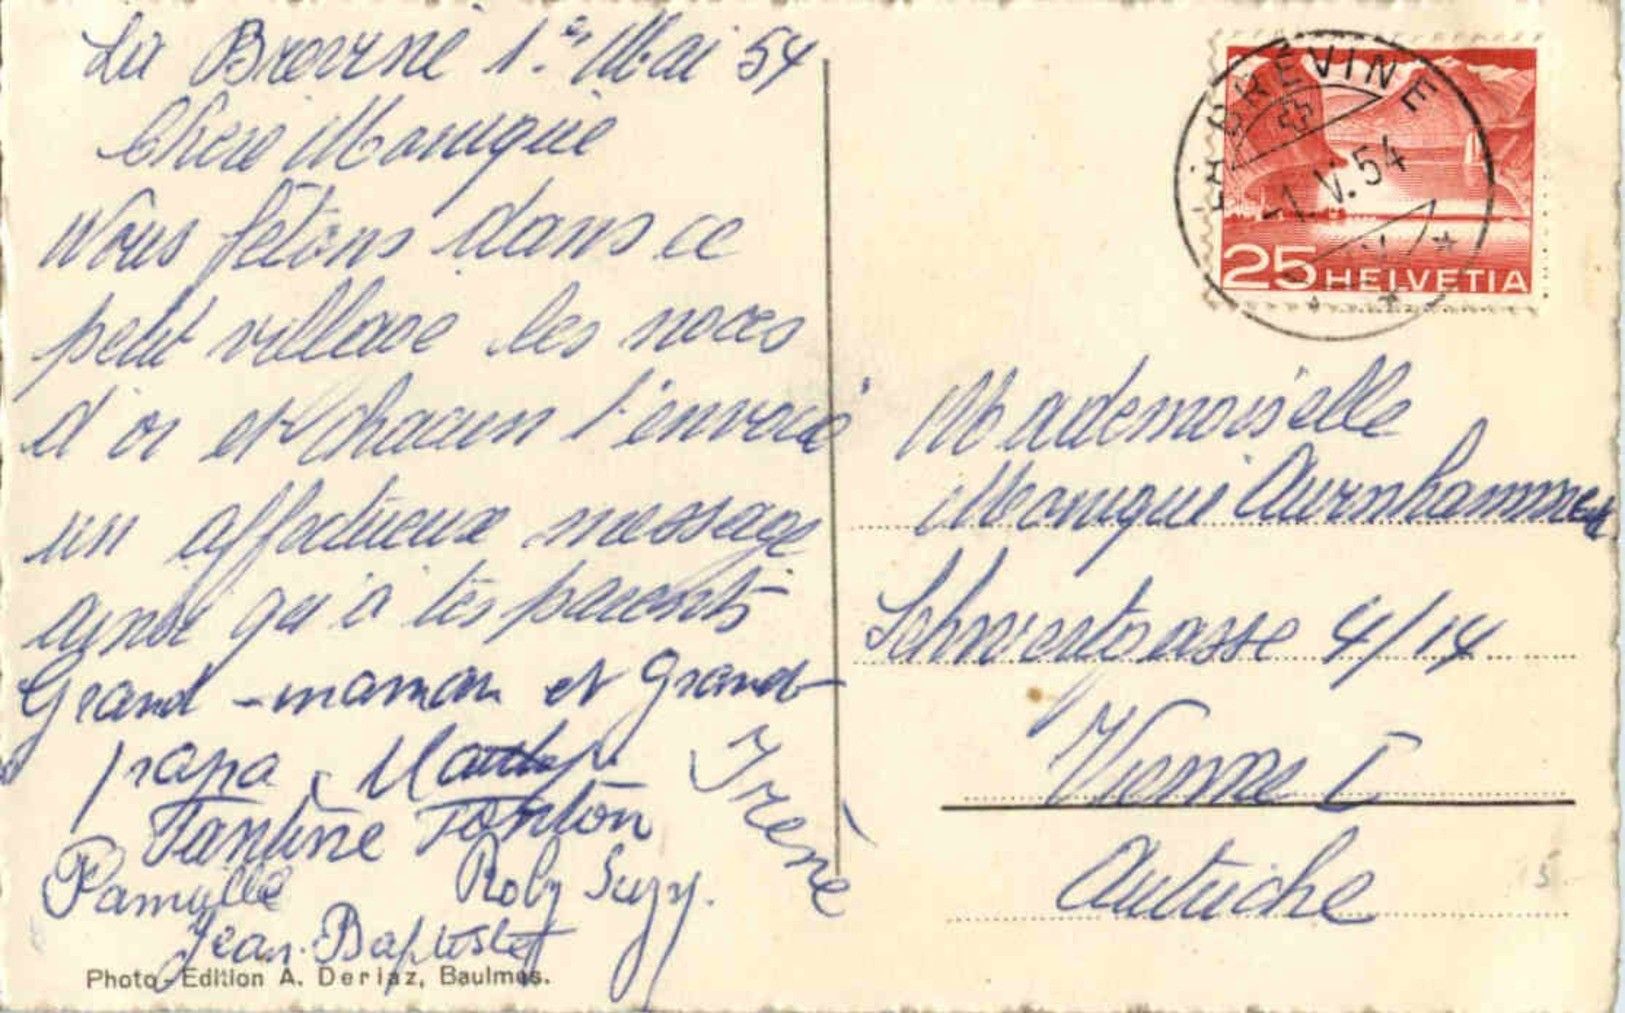 La Brévine 1er Mai 54
Chère Monique
Nous fêtons dans ce
petit village les noces
d'or et chacun t'envoie
un affectueux message
ainsi qu'à tes parents
Grand-maman et Grand-
papa,
Tantine Tonton
Irène
Famille Roby Suzy.
Jean-Baptiste
Photo-Edition A. Deriaz, Baulmes.
LA BRÉVINE
-1.V.54
25 HELVETIA
Mademoiselle
Monique Aurnhammer
4/14
Vienne I
Autriche